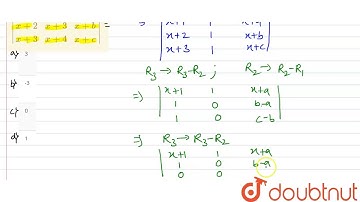 x+2 x+3 x+b =
x+3 x+4 x+c
a) 3
b)
c) 0
d) 1
x+1 1 x+a
x+2 1 x+b
x+3 1 x+c
R3 → R3-R2 ; R2 → R2-R1
=) x+1 1 x+a
1 0 b-a
1 0 c-b
=) R3 → R3-R2
x+1 1 x+a
1 0 b-a
1 0 0
doubtnut